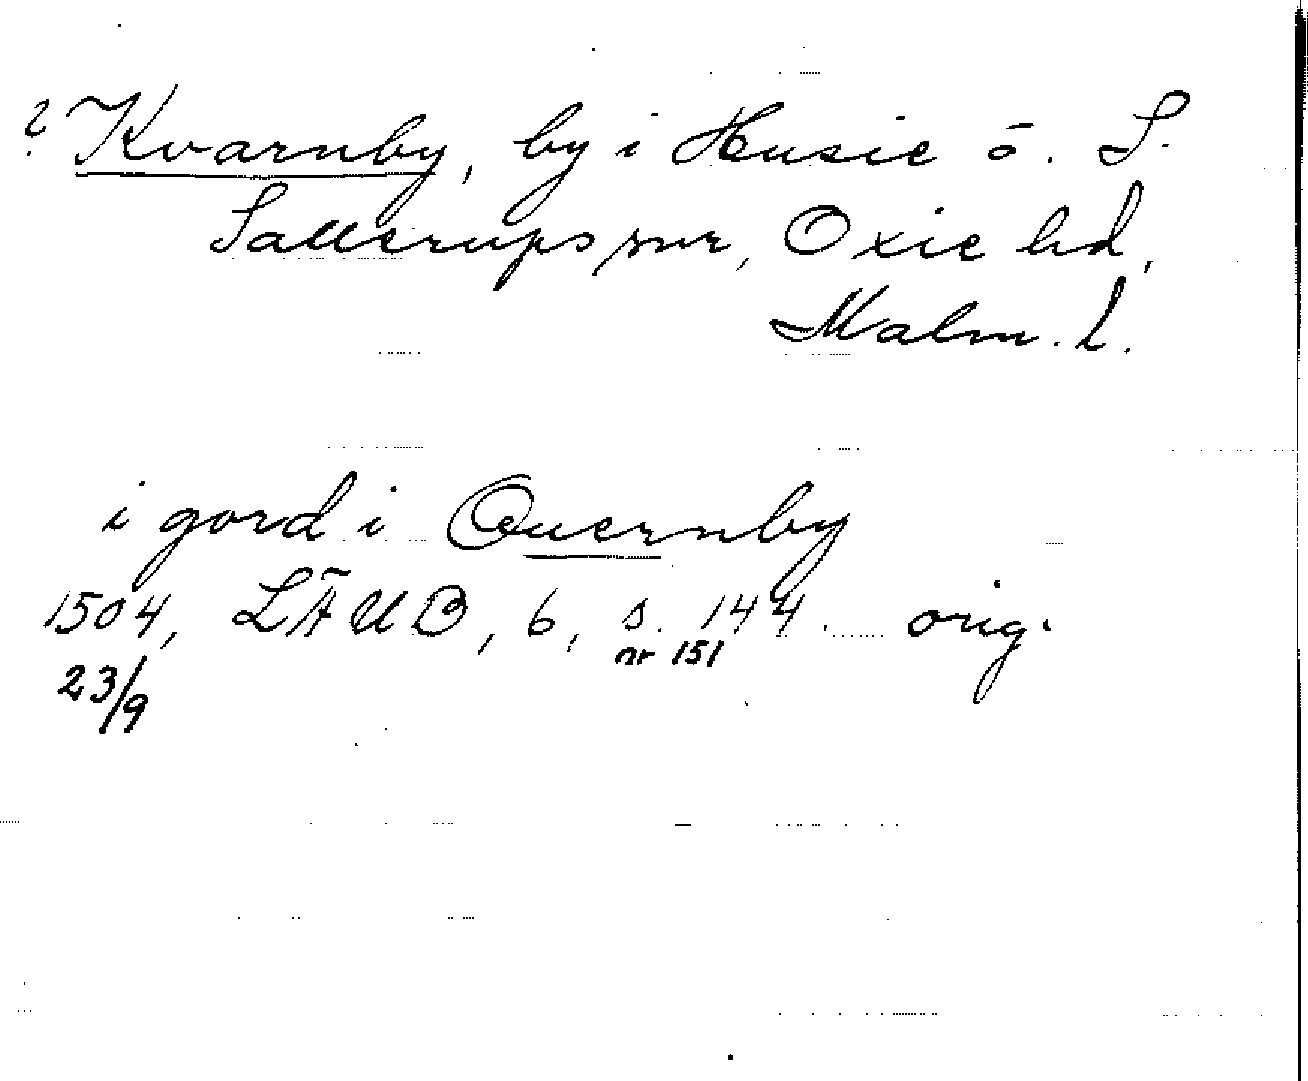 ? Kvarnby, by i Husie o. S.
Sallerups snr, Oxie hd,
Malm. l.
i gord i Quernby
1504, LÄUB, 6, s. 144 orig.
nr 151
23/9